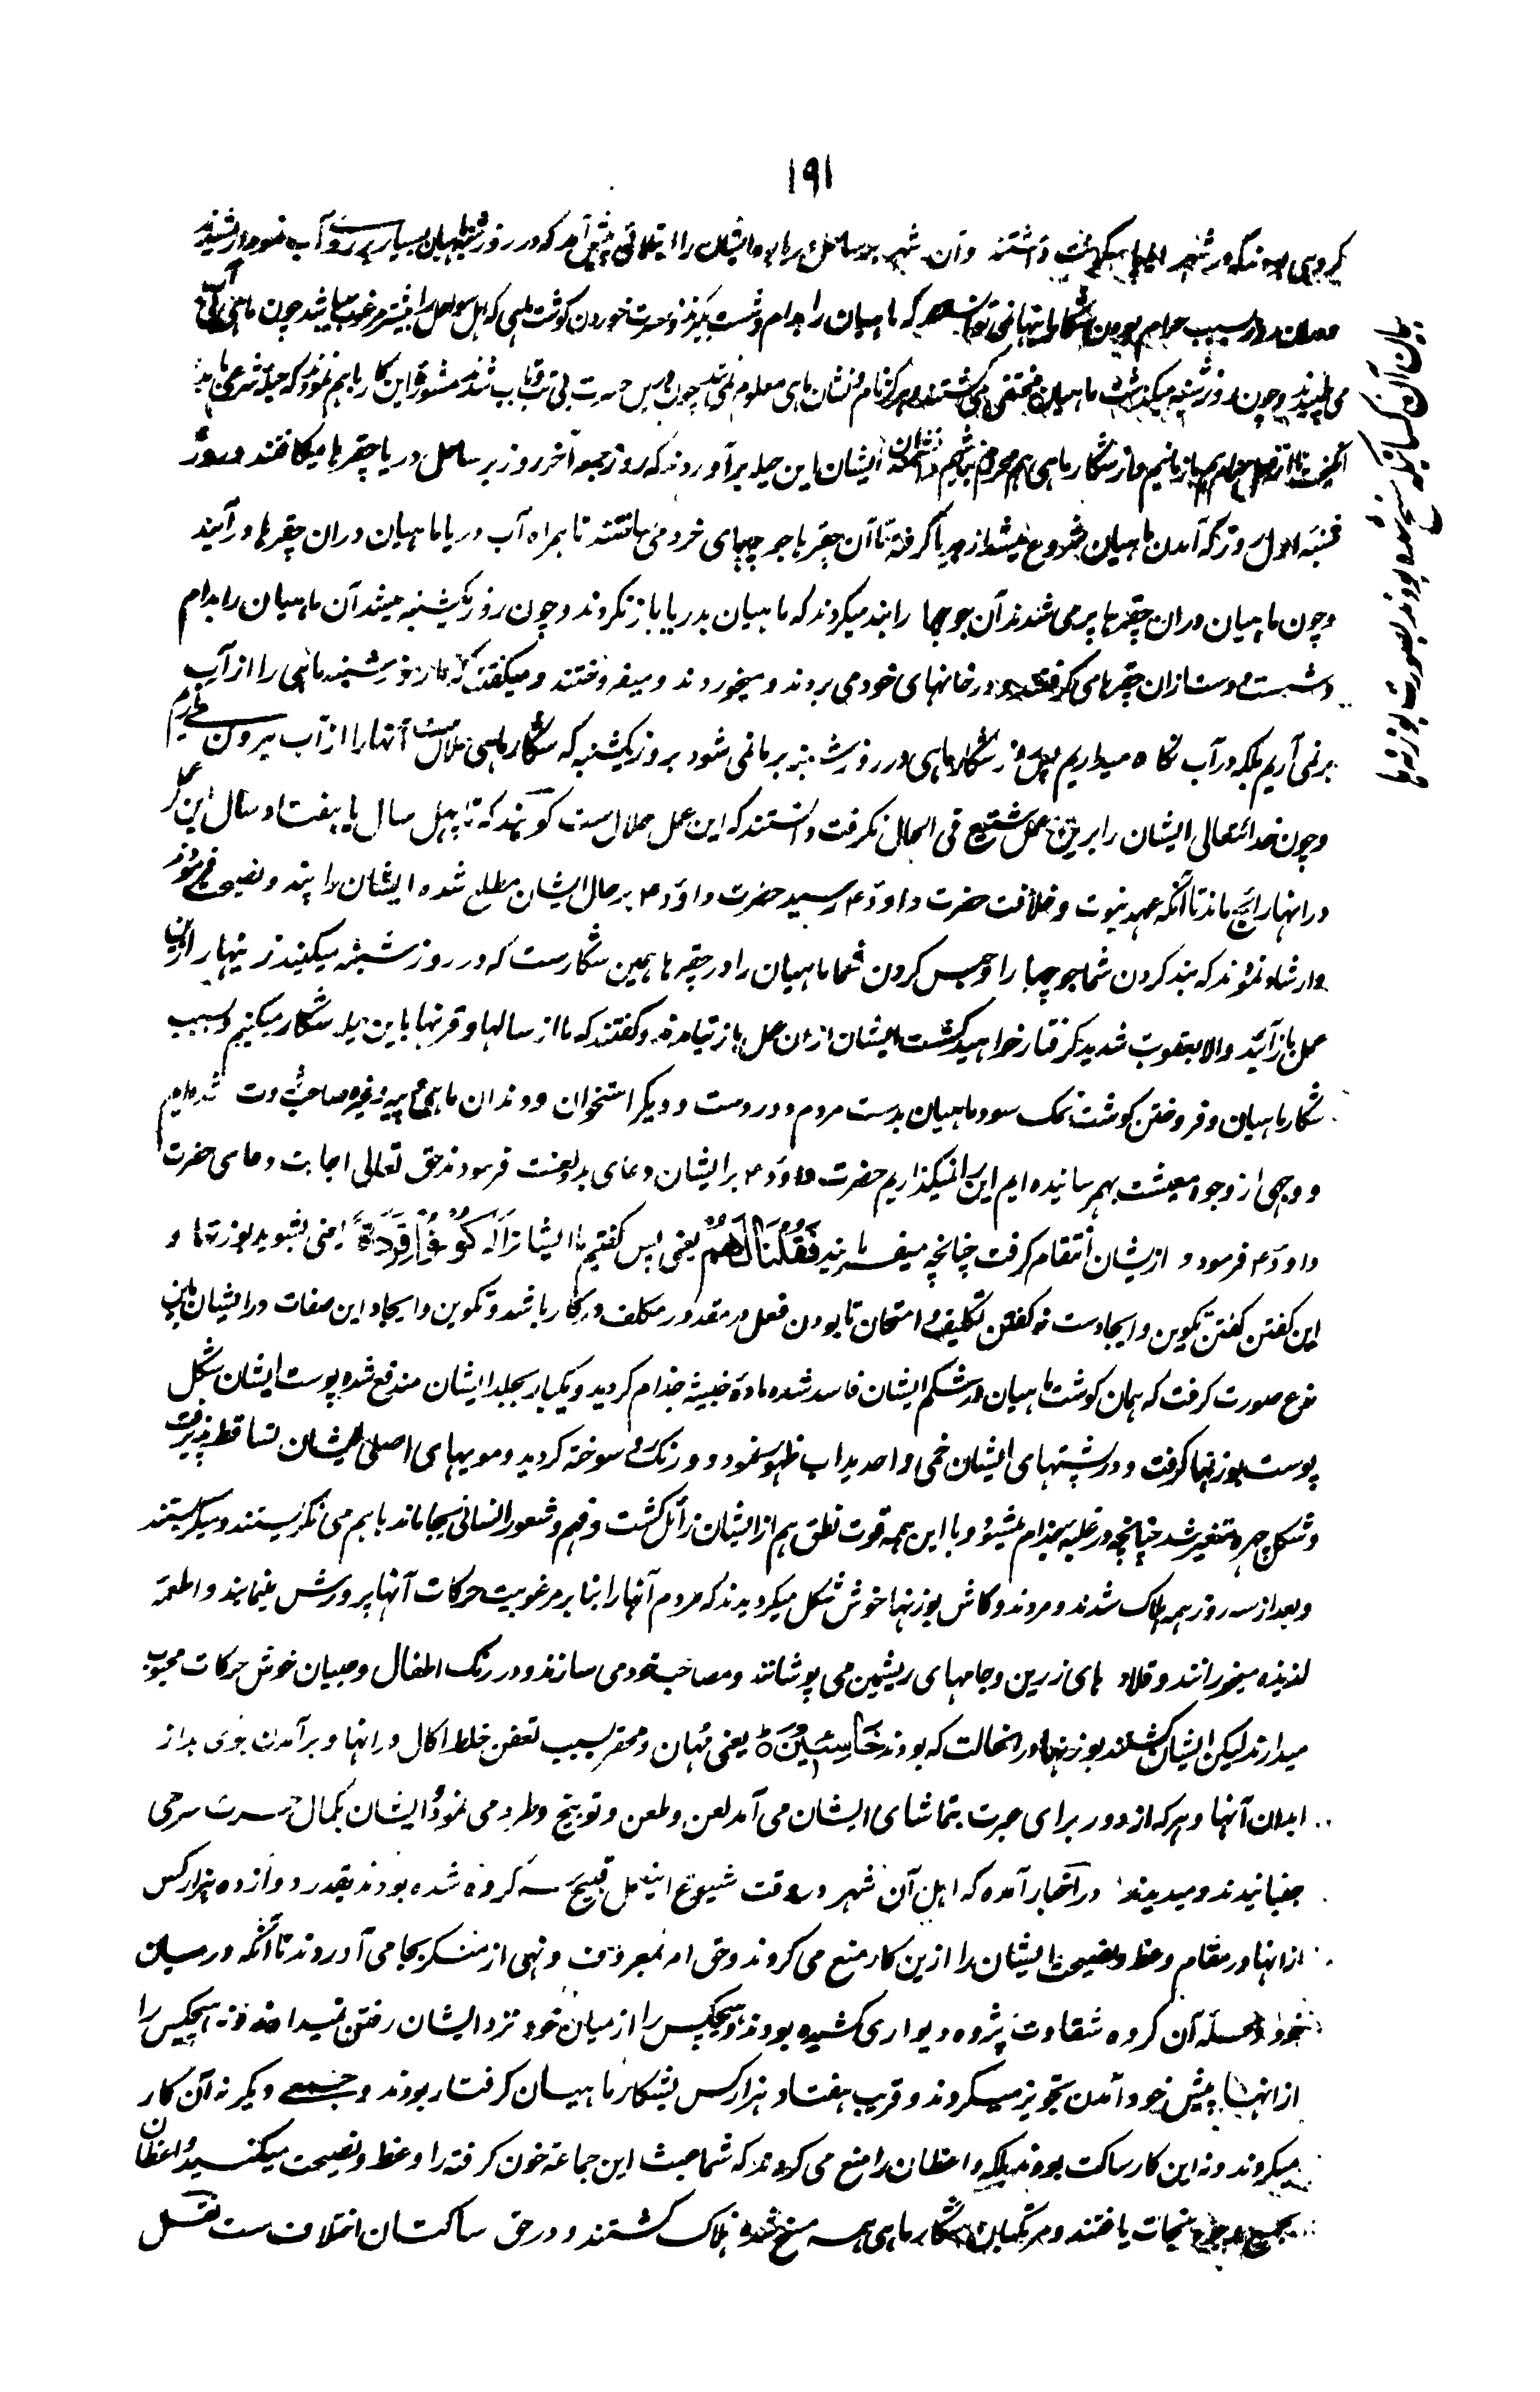 ۱۹۱
گروهی بودند که در شهر ایلیا سکونت داشتند و آن شهر بر ساحل دریا بود ایشان را ابتلائی پیش آمد که در روز شنبه ماهیان بسیار بر روی آب نمودار میشدند
و بسبب حرام بودن شکار اینها نمی توانستند که ماهیان را بدام و شست بگیرند و حسرت خوردن گوشت ماهی که اهل سواحل را بیشتر مرغوب میباشد چون ماهی بی آب
می طپیدند و چون روز شنبه میگذشت ماهیان مختفی می گشتند و هرگز نام و نشان ماهی معلوم نمی شد چون درین حسرت بی تاب شدند مشورة این کار باهم نمودند که حیله شرعی باید
انگیخت تا از حرام هم باز مانیم و از شکار ماهی هم محروم نباشیم دانشمندان ایشان این حیله برآوردند که روز جمعه آخر روز بر ساحل دریا چقرها میکافتند و روز
شنبه اول روز که آمدن ماهیان شروع میشد از دریا گرفته تا آن چقرها جویچهای خرد می ساختند تا همراه آب دریا ماهیان دران چقرها در آیند
و چون ماهیان دران چقرها پر می شدند آن جویچها را بند میکردند که ماهیان بدریا باز نگردند و چون روز یکشنبه میشد آن ماهیان را بدام
و شست و دست ازان چقرها می گرفتند و در خانهای خود می بردند و میخوردند و میفروختند و میگفتند که ما روز شنبه ماهی را از آب
بر نمی آریم بلکه در آب نگاه میداریم پس وزر شکار ماهی در روز شنبه بر ما نمی شود بروز یکشنبه که شکار ماهی حلال ست آنها را از آب بیرون می آریم
و چون خدایتعالی ایشان را برین عمل شنیع فی الحال نگرفت دانستند که این عمل حلال ست گویند که تا چهل سال یا هفتاد سال این عمل
در اینها رائج ماند تا آنکه عهد نبوت و خلافت حضرت داود ع رسید حضرت داود ع بر حال ایشان مطلع شده ایشان را پند و نصیحت فرمودند
و ارشاد نمودند که بند کردن شما جویچها را و حبس کردن شما ماهیان را در چقرها همین شکارست که در روز شنبه میکنید زینهار ازین
عمل باز آئید والا بعقوبت شدید گرفتار خواهید گشت ایشان ازان عمل باز نیامدند و گفتند که ما از سالها و قرنها باین حیله شکار میکنیم و بسبب
شکار ماهیان و فروختن گوشت نمک سود ماهیان بدست مردم دور دست و دیگر استخوان و دندان ماهی و پیه وغیره صاحب ثروت شده ایم
و وجهی از وجوه معیشت بهم رسانیده ایم این را نمیگذاریم حضرت داود ع بر ایشان دعای بد و لعنت فرمودند حق تعالی اجابت دعای حضرت
داود ع فرمود و از ایشان انتقام گرفت چنانچه میفرمایند فَقُلْنَا لَهُمْ یعنی پس گفتیم ما ایشان را که كُونُوا قِرَدَةً یعنی بشوید بوزنها و
این گفتن گفتن تکوین و ایجادست نه گفتن تکلیف و امتحان تا بودن فعل در مقدور مکلف درکار باشد و تکوین و ایجاد این صفات در ایشان باین
نوع صورت گرفت که همان گوشت ماهیان در شکم ایشان فاسد شده ماده خبیثه جذام گردید و یکبار بجلد ایشان مندفع شده پوست ایشان شکل
پوست بوزنها گرفت و در پشتهای ایشان خمی و احدیداب ظهور نمود و رنگ رو سوخته گردید و مویهای اصلی ایشان تساقط پذیرفت
و شکل چهره متغیر شد چنانچه در غلبه جذام میشود و با این همه قوت نطق هم از ایشان زائل گشت و فهم و شعور انسانی بجا ماند باهم می نگریستند و میگریستند
و بعد از سه روز همه هلاک شدند و مردند و کاش بوزنها خوش شکل میگردیدند که مردم آنها را بنا بر مرغوبیت حرکات آنها پرورش مینمایند و اطعمه
لذیذه میخورانند و قلاده های زرین و جامهای ریشمین می پوشانند و مصاحب خود می سازند و در رنگ اطفال و صبیان خوش حرکات محبوب
میدارند لیکن ایشان گشتند بوزنها در انحالت که بودند خَاسِئِينَ یعنی مُهان و محقر بسبب تعفن خلط اکال در اینها و برآمدن بوی بد از
ابدان آنها و هر که از دور برای عبرت بتماشای ایشان می آمد لعن و طعن و توبیخ و طرد می نمود و ایشان بکمال حسرت سر می
جنبانیدند و میدیدند در اخبار آمده که اهل آن شهر در وقت شیوع اینعمل قبیح سه گروه شده بودند بقدر دوازده هزار کس
از انها در مقام وعظ و نصیحت ایشان را ازین کار منع می کردند و حق امر بمعروف و نهی از منکر بجا می آوردند تا آنکه در میان
خود و محله آن گروه شقاوت پژوه دیواری کشیده بودند و هیچکس را از میان خود نزد ایشان رفتن نمیدادند و نه هیچکس را
از انها پیش خود آمدن تجویز میکردند و قریب هفتاد هزار کس بشکار ماهیان گرفتار بودند و جمعی دیگر نه آن کار
میکردند و نه این کار ساکت بودند بلکه واعظان را منع می کردند که شما عبث این جماعة خون گرفته را وعظ و نصیحت میکنید واعظان
بجمیع وجوه نجات یافتند و مرتکبان شکار ماهی همه مسخ شده هلاک گشتند و در حق ساکتان اختلاف ست نقل
بیان آن کسانیکه مسخ شده بودند بصورت بوزنه ها